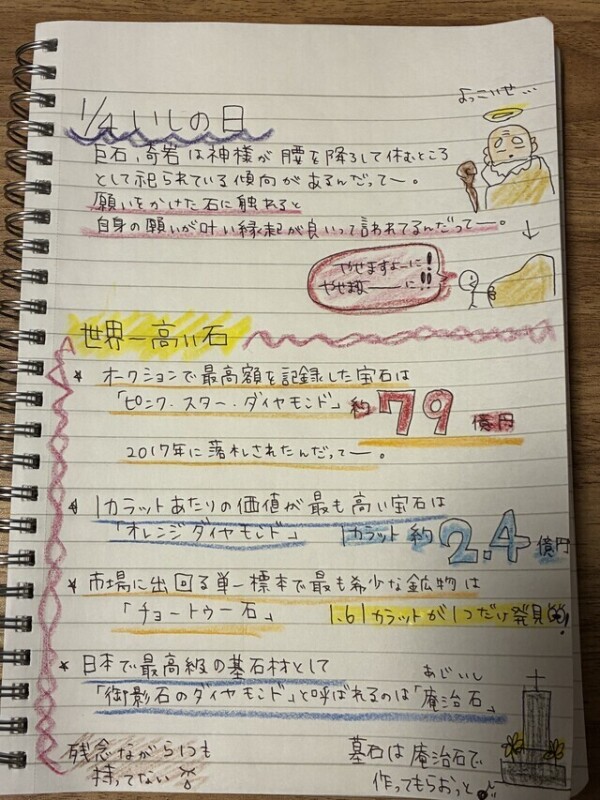 よっこいせ…
1/4 いしの日
巨石、奇岩は神様が腰を降ろして休むところ
として祀られている傾向があるんだってー。
願いをかけた石に触れると
自身の願いが叶い縁起が良いって言われてるんだってー。
やせますよーに!!
やせますーーに!!
世界一高い石
★ オークションで最高額を記録した宝石は
「ピンク・スター・ダイヤモンド」 約79億円
2017年に落札されたんだってー。
★ 1カラットあたりの価値が最も高い宝石は
「オレンジダイヤモンド」 1カラット約2.4億円
★ 市場に出回る単一標本で最も希少な鉱物は
「チョートゥー石」 1.61カラットが1つだけ発見!
★ 日本で最高級の墓石材として
あじいし
「御影石のダイヤモンド」と呼ばれるのは「庵治石」
残念ながら1つも
持ってない
墓石は庵治石で
作ってもらおっと♪